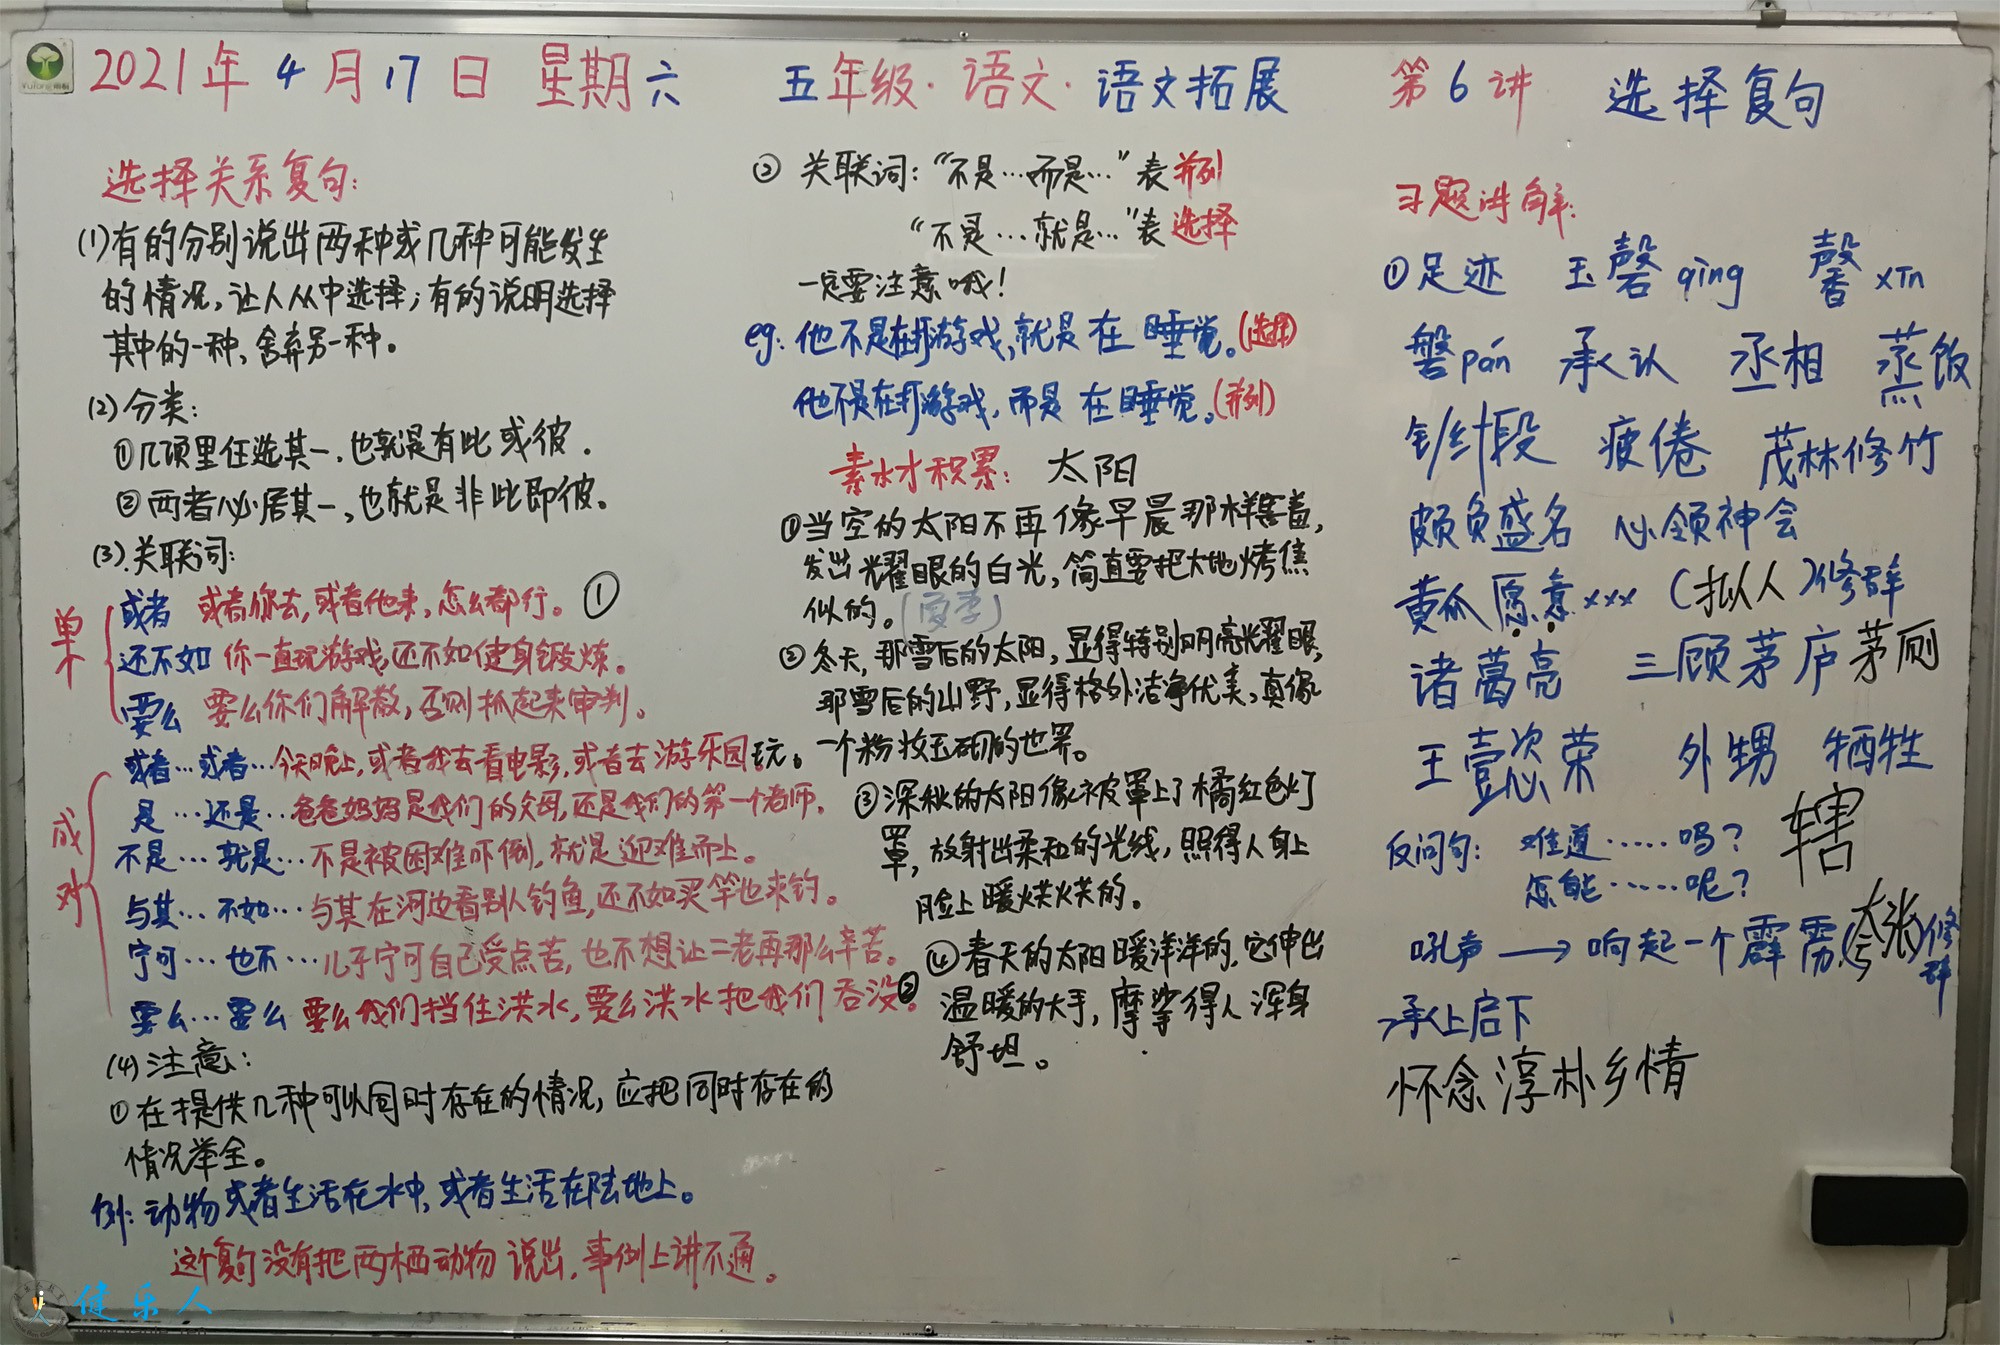 2021年4月17日 星期六 五年级·语文·语文拓展 第6讲 选择复句
选择关系复句:
(1)有的分别说出两种或几种可能发生
的情况,让人从中选择;有的说明选择
其中的一种,舍弃另一种。
(2)分类:
①几项里任选其一,也就是有此或彼.
②两者必居其一,也就是非此即彼。
(3).关联词:
单个
或者 或者你去,或者他来,怎么都行。①
还不如 你一直玩游戏,还不如健身锻炼。
要么 要么你们解散,否则抓起来审判。
成对
或者…或者… 今天晚上,或者我去看电影,或者去游乐园玩。
是…还是… 爸爸妈妈是我们的父母,还是我们的第一个老师.
不是…就是… 不是被困难吓倒,就是迎难而上。
与其…不如… 与其在河边看别人钓鱼,还不如买竿也来钓。
宁可…也不… 儿子宁可自己受点苦,也不想让二老再那么辛苦。
要么…要么 要么我们挡住洪水,要么洪水把我们吞没。②
(4)注意:
①在提供几种可以同时存在的情况,应把同时存在的
情况举全。
例:动物或者生活在水中,或者生活在陆地上。
这个复句没有把两栖动物说出,事例上讲不通。
② 关联词:“不是…而是…”表并列
“不是…就是…”表选择
一定要注意哦!
eg:他不是在打游戏,就是在睡觉。(选择)
他不是在打游戏,而是在睡觉。(并列)
素材积累: 太阳
①当空的太阳不再像早晨那样害羞,
发出光耀眼的白光,简直要把大地烤焦
似的。(夏季)
②冬天,那雪后的太阳,显得特别明亮光耀眼,
那雪后的山野,显得格外洁净优美,真像
一个粉妆玉砌的世界。
③深秋的太阳像被罩上了橘红色灯
罩,放射出柔和的光线,照得人身上
脸上暖烘烘的。
④春天的太阳暖洋洋的,它伸出
温暖的大手,摩挲得人浑身
舒坦。
习题讲解:
①足迹 玉磬qìng 馨xīn
磐pán 承认 丞相 蒸饭
钅纟阶段 疲倦 茂林修竹
颇负盛名 心领神会
黄瓜愿意xxx (拟人)修辞
诸葛亮 三顾茅庐 茅厕
王壹恣荣 外甥 牺牲
反问句: 难道……吗? 辖
怎能……呢?
吼声→响起一个霹雳.(夸张)修辞
承上启下
怀念淳朴乡情
健乐人